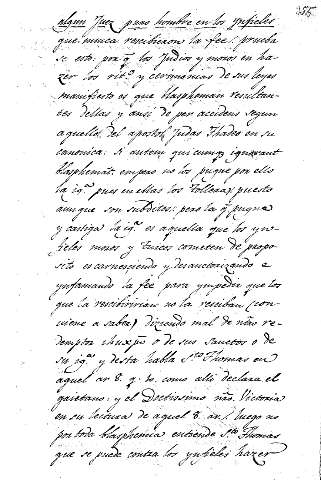 355
algun Juez puro hombre en los ynfieles
que nunca rescibieron la fee: prueba
se esto: por q los Judios y moros en ha
zer los rits y cerimonias de sus leyes
manifiesto es que blasphoman resultan
tes dellas y ansi de per accidens segun
aquello del apostol Judas Thadeo en su
canonica: Si autem quicumq ignorant
blasphemāt empero no los pugne por ello
la igª pues en ellas los tollera puesto
aunque son subditos: pero la q pugne
y castiga la igª es aquella que los yn
fieles moros y turcos cometen de propo
sito escarneciendo y desauctorizando e
ynfamando la fee para ympedir que los
que la rescibirian no la resciban (con
viene a saber) diziendo mal de nro re
demptor chuxpo o de sus sanctos o de
su igª y desta habla Sto Thomas en
aquel ar 8. q. 10. como alli declara el
gaietano: y el Doctissimo nro Victoria
en su lectura de aquel 8. ar. luego no
por toda blasphemia entiende Sto Thomas
que se puede contra los ynfieles hazer